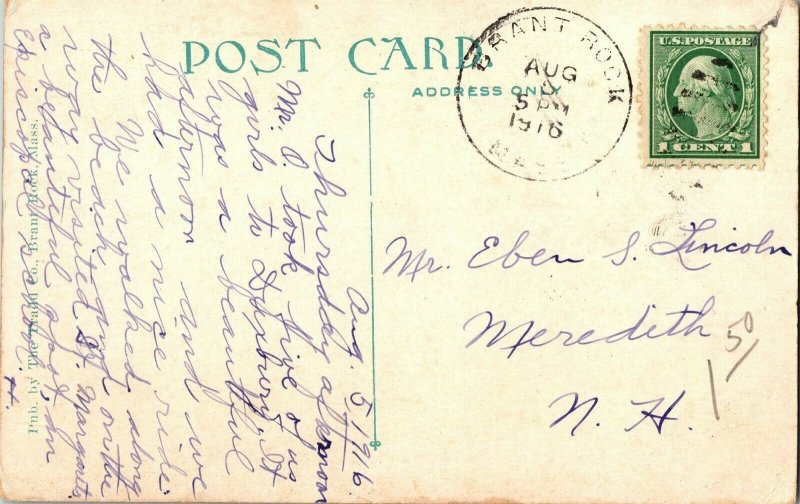 POST CARD.
ADDRESS ONLY
BRANT ROCK
AUG
5 PM
1916
MASS.
U.S. POSTAGE
1 CENT 1
Aug. 5 1916.
Thursday afternoon
Mr. O. took five of us
girls to Duxbury. It
was a beautiful
afternoon and we
had a nice ride.
We walked along
the beach and on the
way visited St. Margarets,
a beautiful spot, an
Episcopal school.
H.
Mr. Eben S. Lincoln
Meredith
N. H.
150
Pub. by The Co., Brant Rock, Mass.